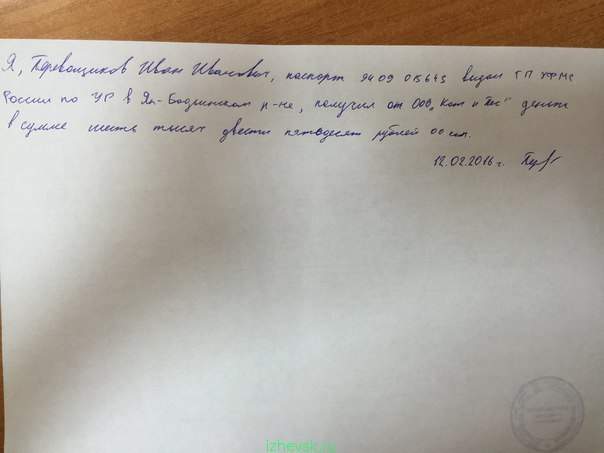 Я, Перевощиков Иван Иванович, паспорт 9409 015645 выдан ТП УФМС
России по УР в Як-Бодьинском р-не, получил от ООО "Кот и Пёс" деньги
в сумме шесть тысяч двести пятьдесят рублей 00 коп.
12.02.2016 г.
izhevsk.ru